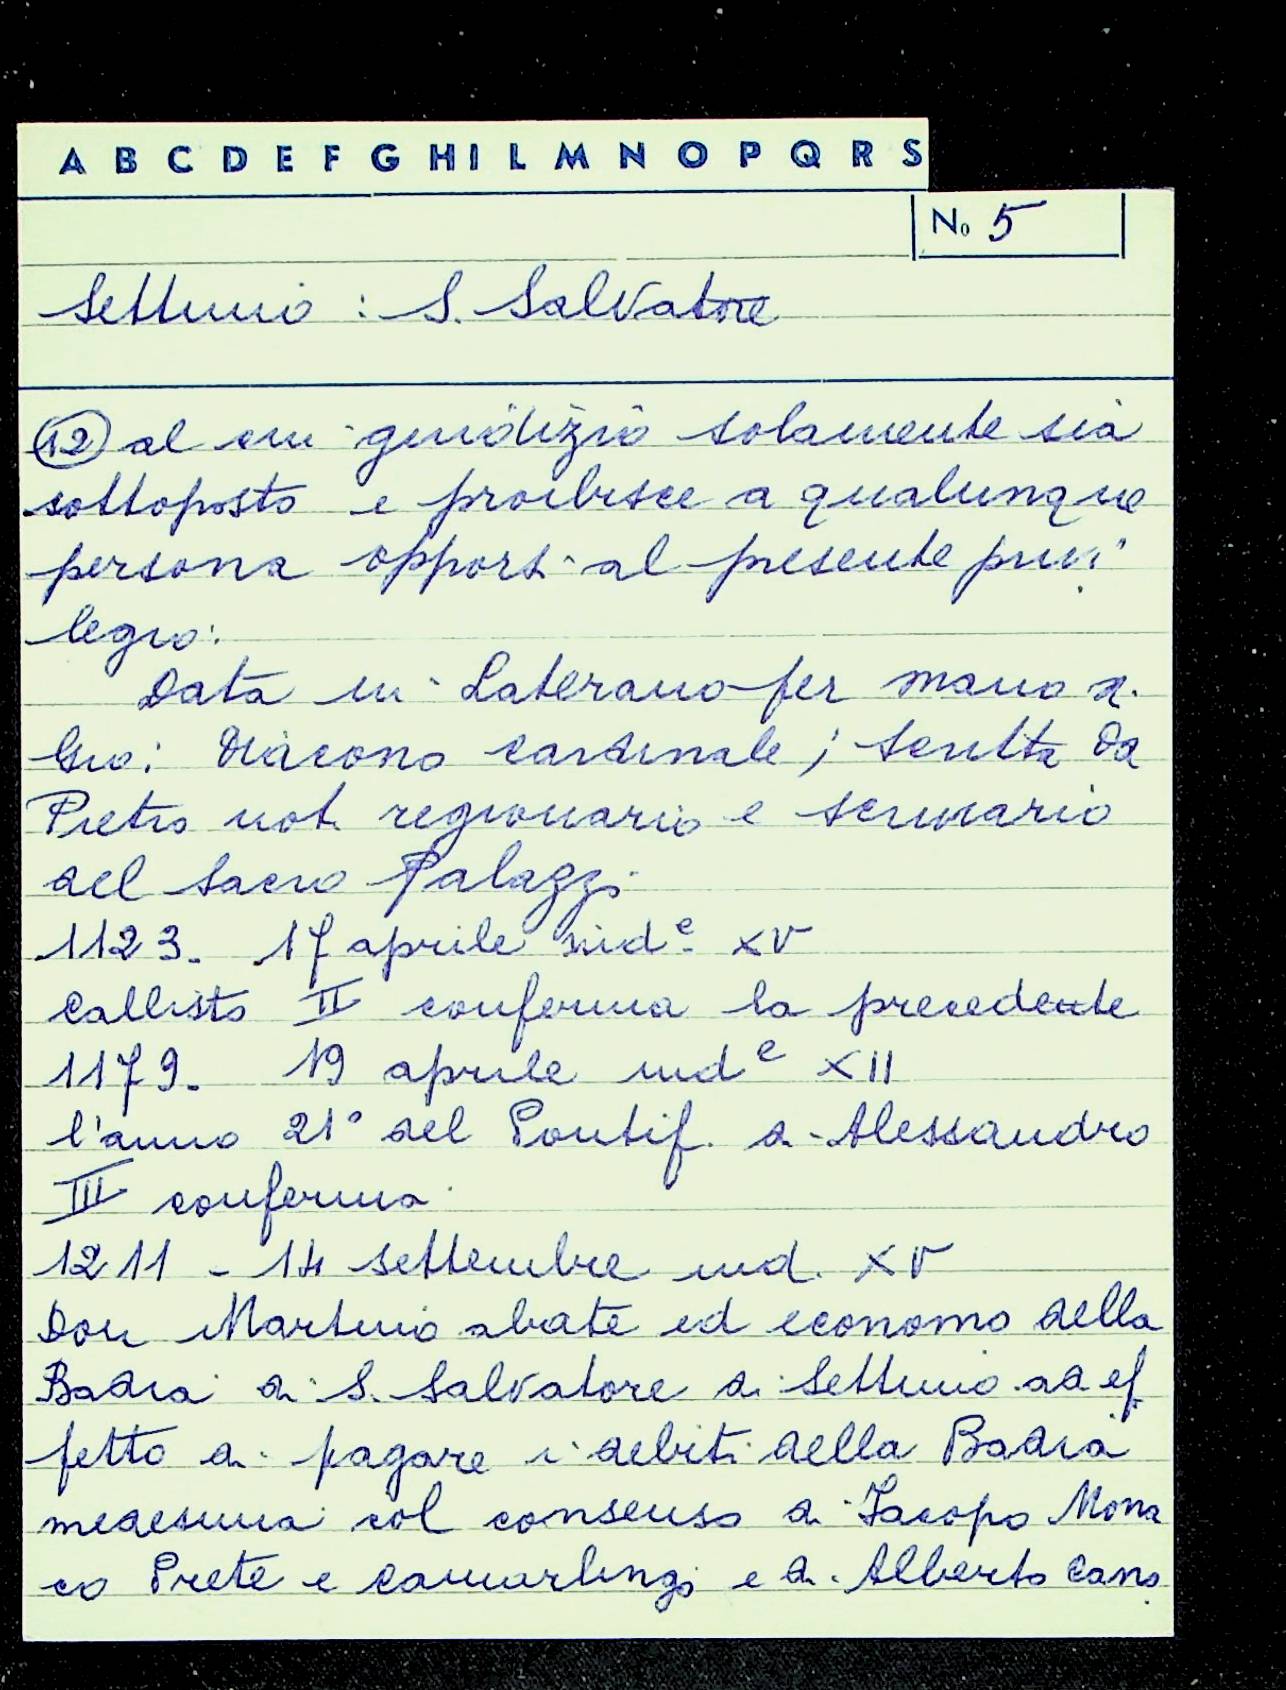 A B C D E F G H I L M N O P Q R S
No 5
Settimo : S. Salvatore
(12) al cui giudizio solamente sia
sottoposto e proibisce a qualunque
persona opporsi al presente privi
legio.
Data in Laterano per mano di
Gio: Diacono cardinale; scritta da
Pietro not. regionario e scriniario
del Sacro Palazzo
1123. 17 aprile indᵉ XV
Callisto II conferma la precedente
1179. 19 aprile indᵉ XII
l'anno 21° del Pontif. di Alessandro
III conferma
1211 - 14 settembre ind. XV
Don Martino abate ed economo della
Badia di S. Salvatore a Settimo ad ef
fetto di pagare i debiti della Badia
medesima col consenso di Jacopo Mona
co Prete e Camarlingo e di Alberto Cano